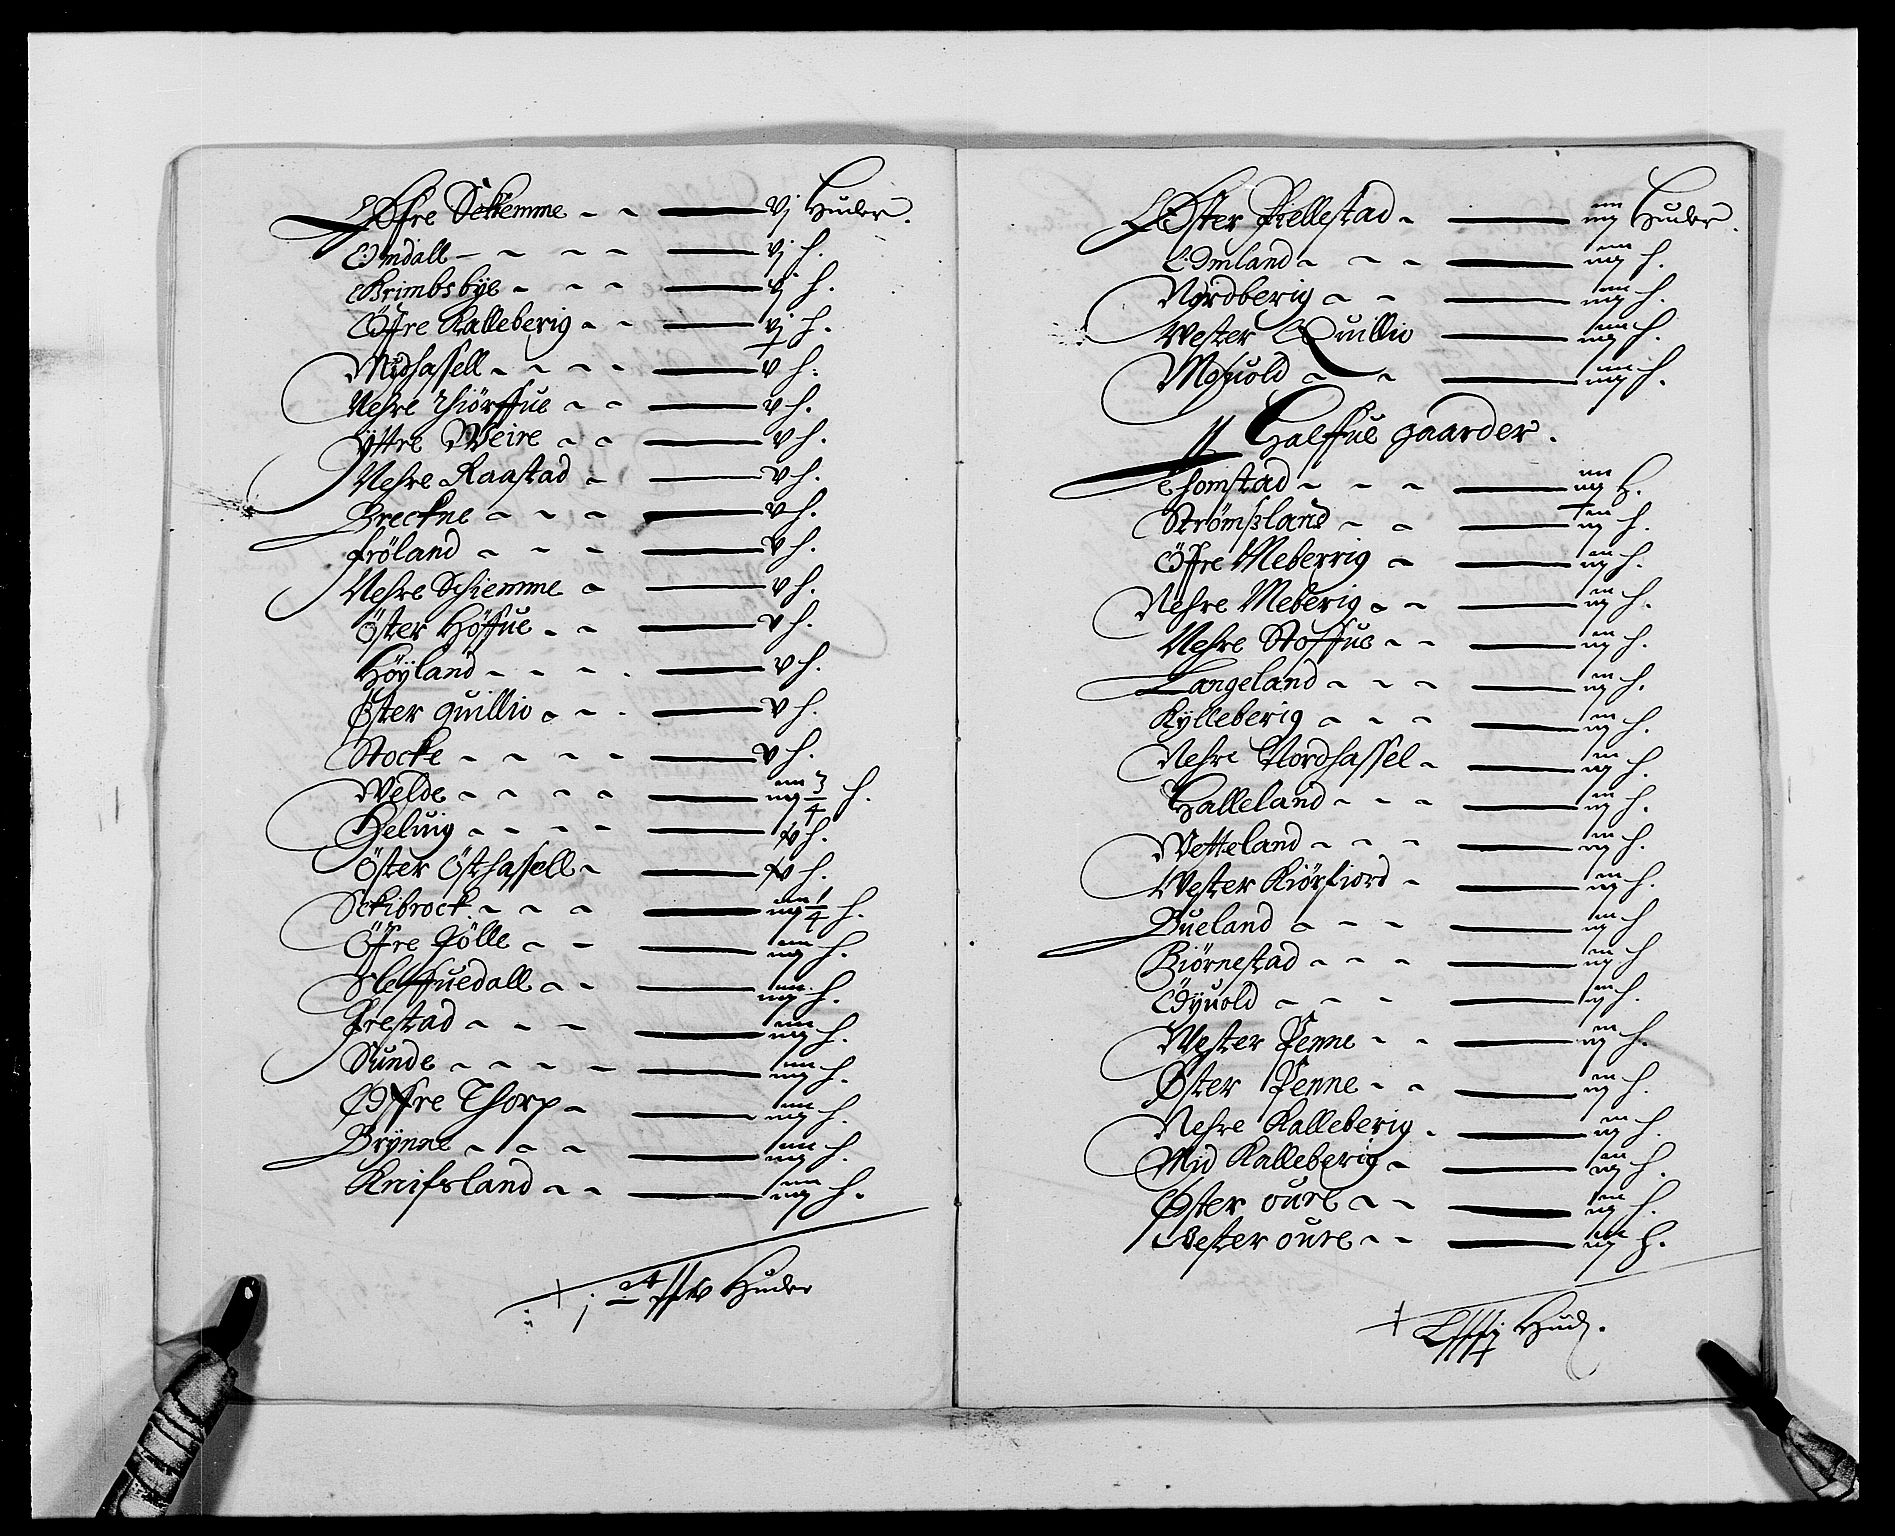 Øfre Sckiemme - - vj Huder.
Omdall - - - - vj h.
Grimbsbÿe - - - - vj h.
Öffre Kalleberig - - vj h.
Midhassell - - - - v h:
Nehre Thiörffue - - v h.
Ÿttre Weire - - v h.
Nehre Raastad - v h.
Breckne - - - v h.
fröland - - - v h.
Nehre Schiemme - v h.
Öster Höffue - - v h.
Höÿland - - - - v h.
Øster quillio - - - v h.
Stocke - - - - v h.
Welde - - - - iiij 3/4 h.
Heluig - - - - v h.
Öster Östhassell - v h.
Sckibrock - - - iiij 1/4 h.
Öffre Jölle - - iiij h.
Sleffuedall - - iiij h.
Prestad - - - iiij h.
Sunde - - - - iiij h.
Öffre Thorp - iiij h.
Brÿnne - - - iiij h.
Knifsland - - iiij h.
Huder
Øster Hellestad - iiij Huder.
Omland - - - iiij h.
Nordberig - - iiij h.
Wester Quillio iiij h.
Mosuold - - iiij h.
Halffue gaarder.
Thomstad - - - iiij H.
Strømsland - - iij h.
Öffre Meberrig - iij h.
Nehre Meberig - - iij h.
Nehre Stoffue - - iij h.
Langeland - - - iij h.
Kÿlleberig - - - iij h.
Nehre Nordhassel - iij h.
Halleland - - - iij h.
Wetteland - - - iij h.
Wester Kiörfiord - iij h.
Bueland - - - iij h
Biörnestad - - - iij h
Öÿuold - - - iij h.
Wester Penne - - iij h.
Øster Penne - - iij h.
Nehre Kalleberig - iij h.
Mid Kalleberig - iij h.
Øster oure - - iij h.
Wester oure - - iij h.
Hud.